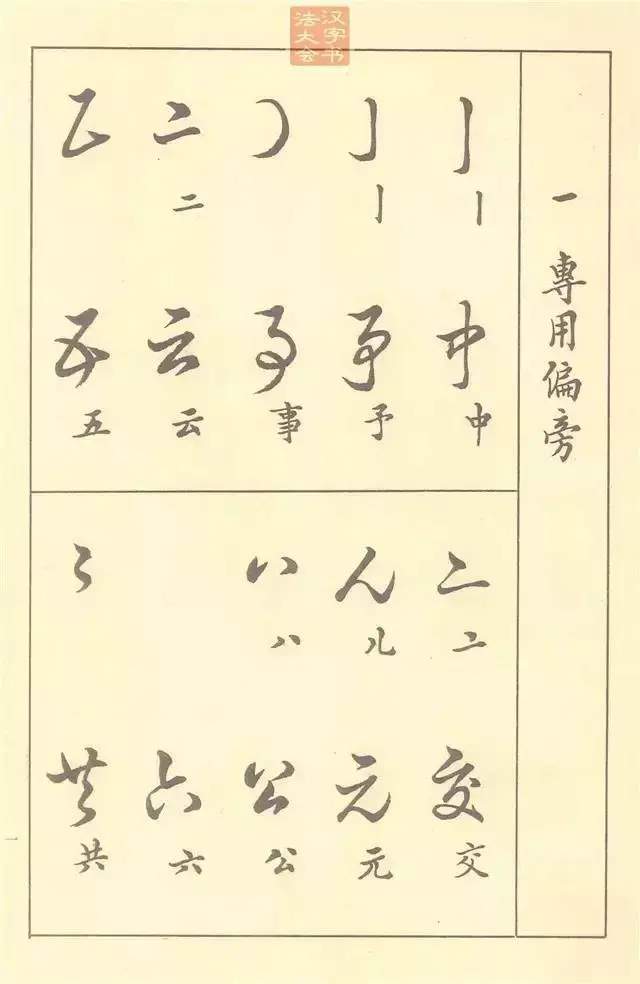 汉字书
法大会
一 專用偏旁
丨 亅
丨 丨 二
中 予 事 云 五
中 予 事 云 五
亠 儿 八
亠 儿 八
交 元 公 六 共
交 元 公 六 共
一